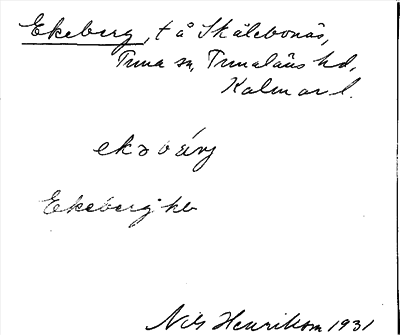 Ekeberg, t å Skälebonäs,
Tuna sn, Tunaläns hd,
Kalmar l.
ekəbärj
Ekeberg kb
Nils Henrikson 1931